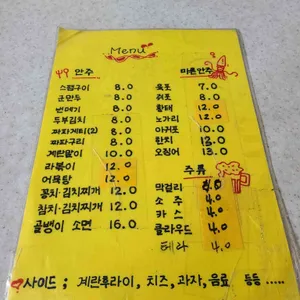 Menu
안주
스팸구이 8.0
군만두 8.0
번데기 8.0
두부김치 8.0
짜파게티(2) 8.0
짜파구리 8.0
계란말이 10.0
라볶이 12.0
어묵탕 12.0
꽁치·김치찌개 12.0
참치·김치찌개 12.0
골뱅이 소면 16.0
마른안주
육포 7.0
쥐포 8.0
황태 12.0
노가리 12.0
아귀포 10.0
한치 13.0
오징어 13.0
주류
막걸리 4.0
소주 4.0
카스 4.0
클라우드 4.0
테라 4.0
사이드 ; 계란후라이, 치즈, 과자, 음료 등등 .....